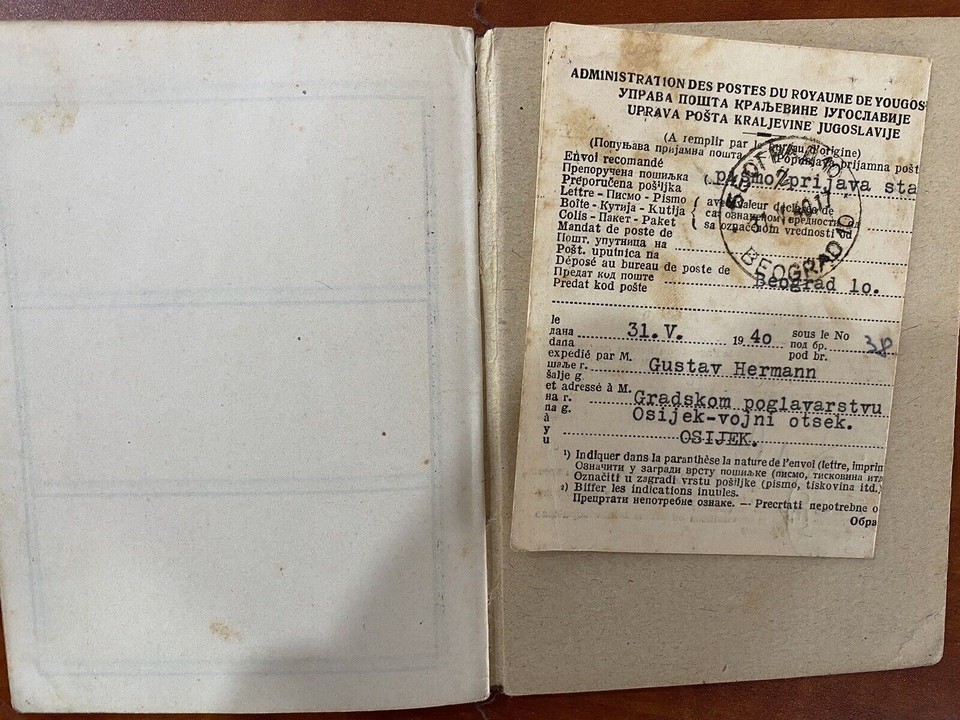 ADMINISTRATION DES POSTES DU ROYAUME DE YOUGOS
УПРАВА ПОШТА КРАЉЕВИНЕ ЈУГОСЛАВИЈЕ
UPRAVA POŠTA KRALJEVINE JUGOSLAVIJE
(A remplir par le bureau d'origine)
(Попуњава пријамна пошта Popunjava prijamna pošt
Envoi recomandé
Препоручена пошиљка
Preporučena pošiljka
( pismo prijava sta
Lettre - Писмо - Pismo
Boîte - Кутија - Kutija
Colis - Пакет - Paket
avec valeur déclarée de
са означеном вредности од
sa označenom vrednosti od
Mandat de poste de
Пошт. упутница на
Pošt. uputnica na
Déposé au bureau de poste de
Предат код поште
Predat kod pošte
Beograd 10.
BEOGRAD 10
le
дана
dana
31.V. 1940
sous le No
под бр.
pod br.
38
expédié par M.
шаље г.
šalje g.
Gustav Hermann
et adressé à M.
на г.
na g.
Gradskom poglavarstvu
à
у
u
Osijek-vojni otsek.
OSIJEK.
¹) Indiquer dans la paranthèse la nature de l'envoi (lettre, imprim
Означити у загради врсту пошиљке (писмо, тисковина итд
Označiti u zagradi vrstu pošiljke (pismo, tiskovina itd.)
²) Biffer les indications inutiles.
Прецртати непотребне ознаке. — Precrtati nepotrebne o
Обра